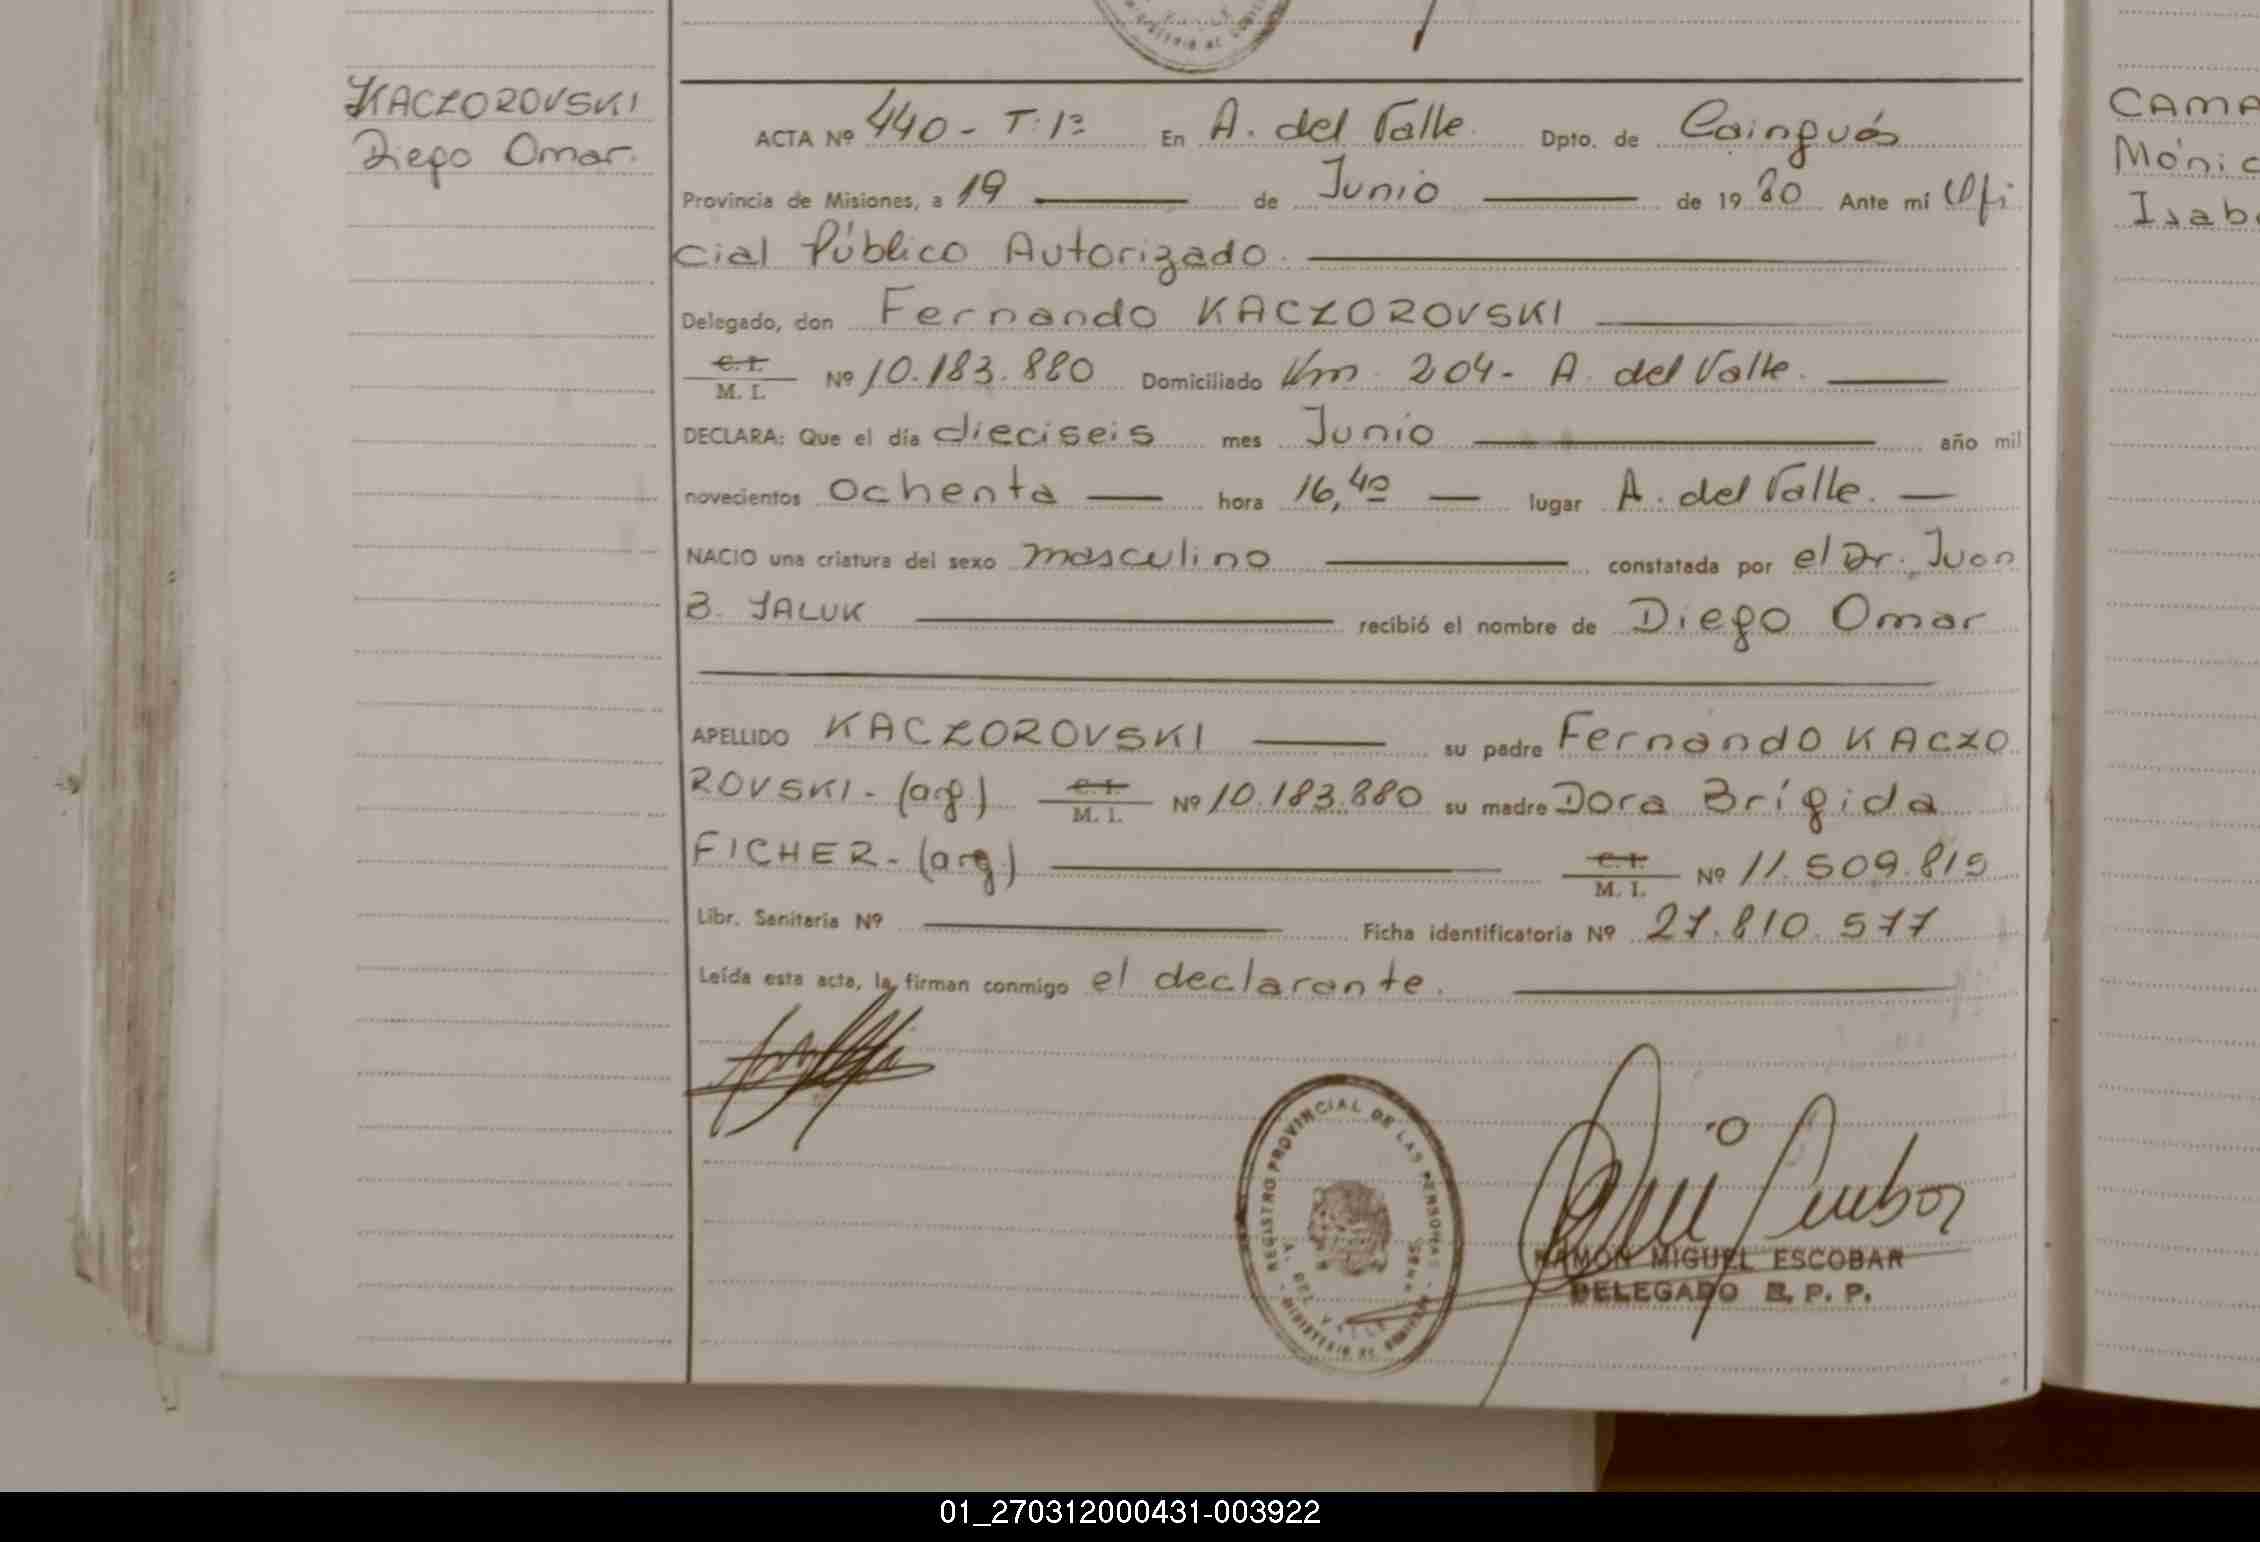 KACZOROVSKI
Diego Omar.
ACTA Nº 440 - T: 1º En A. del Valle. Dpto. de Cainguás
Provincia de Misiones, a 19 de Junio de 19 80 Ante mi Ofi
cial Público Autorizado.
Delegado, don Fernando KACZOROVSKI
C. I.
M. I. Nº 10.183.880 Domiciliado Km. 204 - A. del Valle.
DECLARA: Que el día dieciseis mes Junio año mil
novecientos ochenta hora 16,40 lugar A. del Valle.
NACIO una criatura del sexo masculino constatada por el Dr. Juan
B. JALUK recibió el nombre de Diego Omar
APELLIDO KACZOROVSKI su padre Fernando KACZO
ROVSKI - (arg) C. I. M. I. Nº 10.183.880 su madre Dora Brígida
FICHER - (arg) C. I. M. I. Nº 11.509.819
Libr. Sanitaria Nº Ficha identificatoria Nº 27.810.577
Leída esta acta, la firman conmigo el declarante.
REGISTRO PROVINCIAL DE LAS PERSONAS
A. DEL VALLE
MINISTERIO DE GOBIERNO
RAMON MIGUEL ESCOBAR
DELEGADO R. P. P.
CAMA
Mónic
Isab
01_270312000431-003922